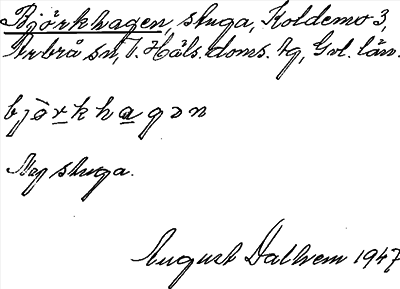 Björkhagen, stuga, Koldemo 3,
Arbrå sn, V. Häls. doms. tg, Gvl. län.
björkhagən
Ny stuga.
August Dalhem 1947